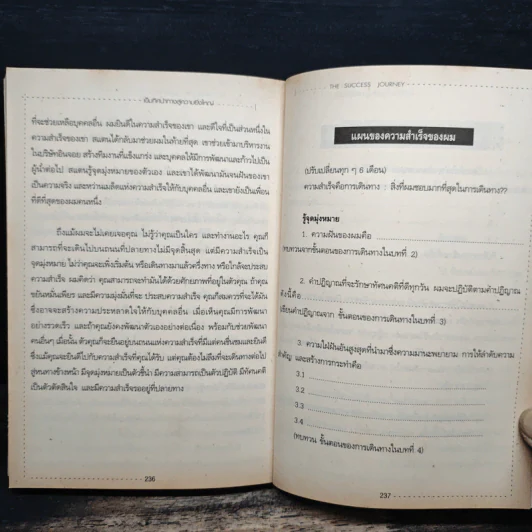 เข็มทิศนำทางสู่ความยิ่งใหญ่
ที่จะช่วยเหลือบุคคลอื่น ผมยินดีในความสำเร็จของเขา และดีใจที่เป็นส่วนหนึ่งใน
ความสำเร็จของเขา สแตนได้กลับมาช่วยผมในท้ายที่สุด เขาช่วยเข้ามาบริหารงาน
ในบริษัทอินจอย สร้างทีมงานที่แข็งแกร่ง และบุคคลให้มีการพัฒนาและก้าวไปเป็น
ผู้นำต่อไป สแตนรู้จุดมุ่งหมายของตัวเอง และเขาได้พัฒนาฝันจนฝันของเขา
เป็นความจริง และหว่านเมล็ดแห่งความสำเร็จให้กับบุคคลอื่น และเขายังเป็นเพื่อน
ที่ดีที่สุดของผมคนหนึ่ง
ถึงแม้ผมจะไม่เคยเจอคุณ ไม่รู้ว่าคุณเป็นใคร และทำงานอะไร คุณก็
สามารถที่จะเดินไปบนถนนที่ปลายทางไม่มีจุดสิ้นสุด แต่มีความสำเร็จเป็น
จุดมุ่งหมาย ไม่ว่าคุณจะเพิ่งเริ่มต้น หรือเดินทางมาแล้วครึ่งทาง หรือใกล้จะประสบ
ความสำเร็จ ผมคิดว่า คุณสามารถจะทำมันได้ด้วยศักยภาพที่อยู่ในตัวคุณ ถ้าคุณ
ขยันหมั่นเพียร และมีความมุ่งมั่นที่จะ ประสบความสำเร็จ คุณก็สมควรที่จะได้มัน
ซึ่งอาจจะสร้างความประหลาดใจให้กับบุคคลอื่น เมื่อเห็นคุณมีการพัฒนา
อย่างรวดเร็ว และถ้าคุณยังคงพัฒนาตัวเองอย่างต่อเนื่อง พร้อมกับช่วยพัฒนา
คนอื่นๆ เมื่อนั้น ตัวคุณก็จะยืนอยู่บนถนนแห่งความสำเร็จที่มีแต่คนชื่นชมและยินดี
ซึ่งแม้คุณจะยินดีไปกับความสำเร็จที่คุณได้รับ แต่คุณต้องไม่ลืมที่จะเดินทางต่อไป
สู่หนทางข้างหน้า มีจุดมุ่งหมายเป็นตัวชี้นำ มีความสามารถเป็นตัวปฏิบัติ มีทัศนคติ
เป็นตัวตัดสินใจ และมีความสำเร็จรออยู่ที่ปลายทาง
236
THE SUCCESS JOURNEY
แผนของความสำเร็จของผม
(ปรับเปลี่ยนทุก ๆ 6 เดือน)
ความสำเร็จคือการเดินทาง : สิ่งที่ผมชอบมากที่สุดในการเดินทาง??
รู้จุดมุ่งหมาย
1. ความฝันของผมคือ
(ทบทวนจากขั้นตอนของการเดินทางในบทที่ 2)
2. คำปฏิญาณที่จะรักษาทัศนคติที่ดีทุกวัน ผมจะปฏิบัติตามคำปฏิญาณ
ดังนี้คือ
(เขียนคำปฏิญาณจาก ขั้นตอนของการเดินทางในบทที่ 3)
3. ความใฝ่ฝันอันสูงสุดที่นำมาซึ่งความมานะพยายาม การให้ลำดับความ
สำคัญ และสร้างการกระทำคือ
3.1
3.2
3.3
3.4
(ทบทวน ขั้นตอนของการเดินทางในบทที่ 4)
237